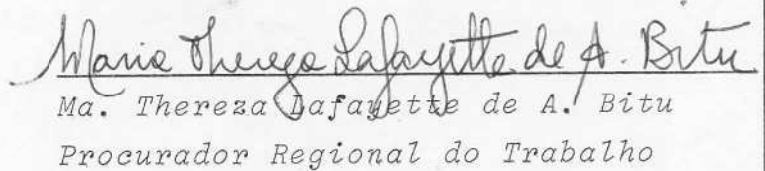 Maria Thereza Lafayette de A. Bitu
Ma. Thereza Lafayette de A. Bitu
Procurador Regional do Trabalho